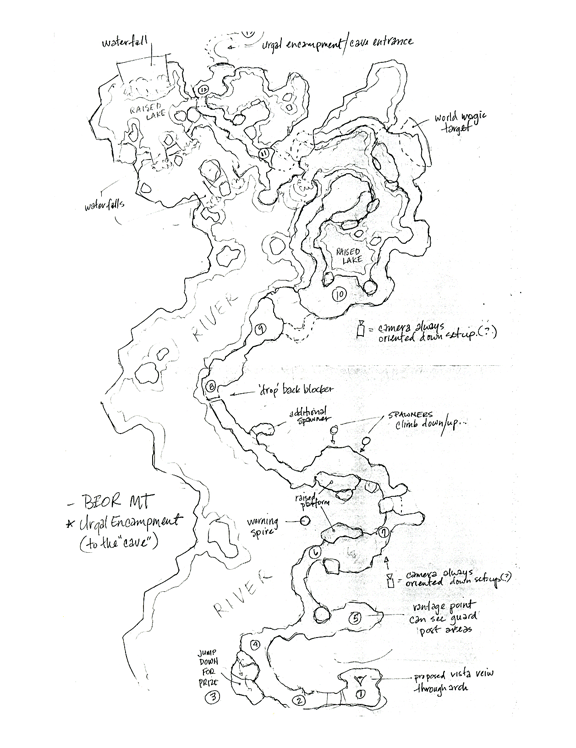 waterfall
urgal encampment/cave entrance
RAISED
LAKE
world magic
target
waterfalls
RAISED
LAKE
10
= camera always
oriented down setup.(?)
RIVER
9
8
'drop' back blocker
additional
spawner
SPAWNERS
climb down/up...
- BEOR MT
* Urgal Encampment
(to the "cave")
raised
platform
warning
spire
7
6
= camera always
oriented down setup(?)
RIVER
vantage point
can see guard
post areas
5
4
JUMP
DOWN
FOR
PRIZE
3
2
1
proposed vista veiw
through arch